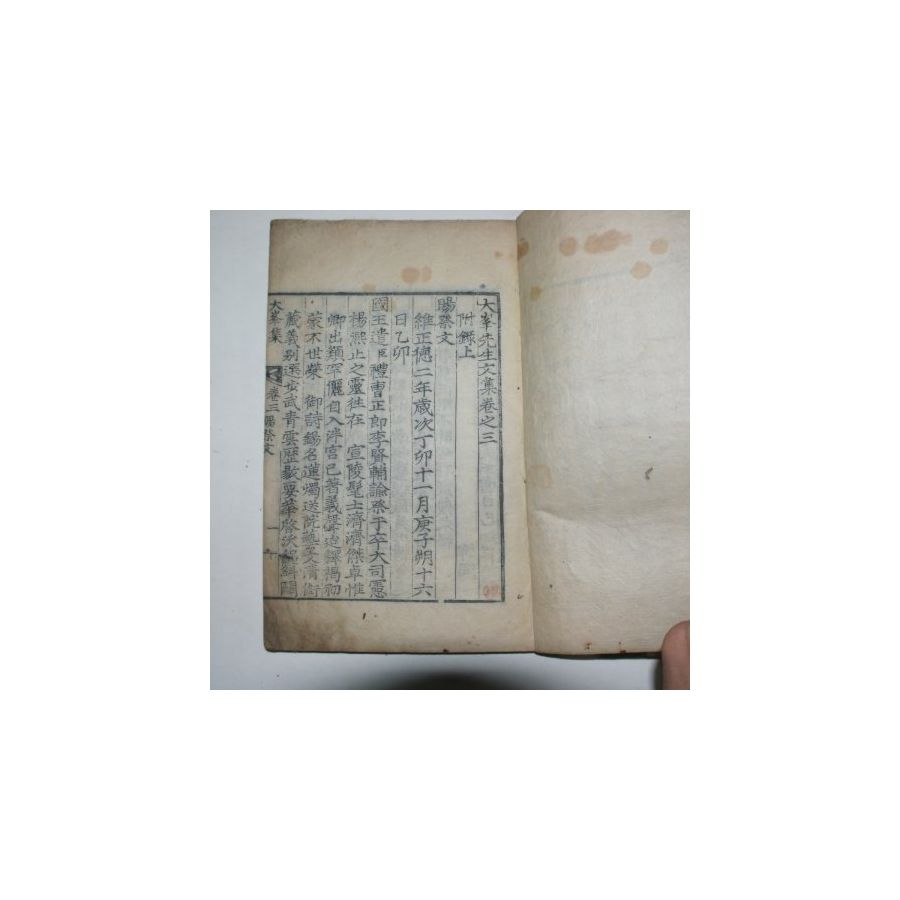 大峯先生文集卷之三
附錄上
賜祭文
維正德二年歲次丁卯十一月庚子朔十六
日乙卯
國王遣臣禮曹正郎李賢輔諭祭于卒大司憲
楊熙止之靈徃在 宣陵髦士濟濟傑卓惟
卿出類罕儷自入泮宮已著義聲迨釋褐初
蒙不世榮 御詩錫名蓮燭送院藝文淸銜
藏義別選 武靑雲歷敭要華啓沃 緝
大峯集 卷三 賜祭文 一